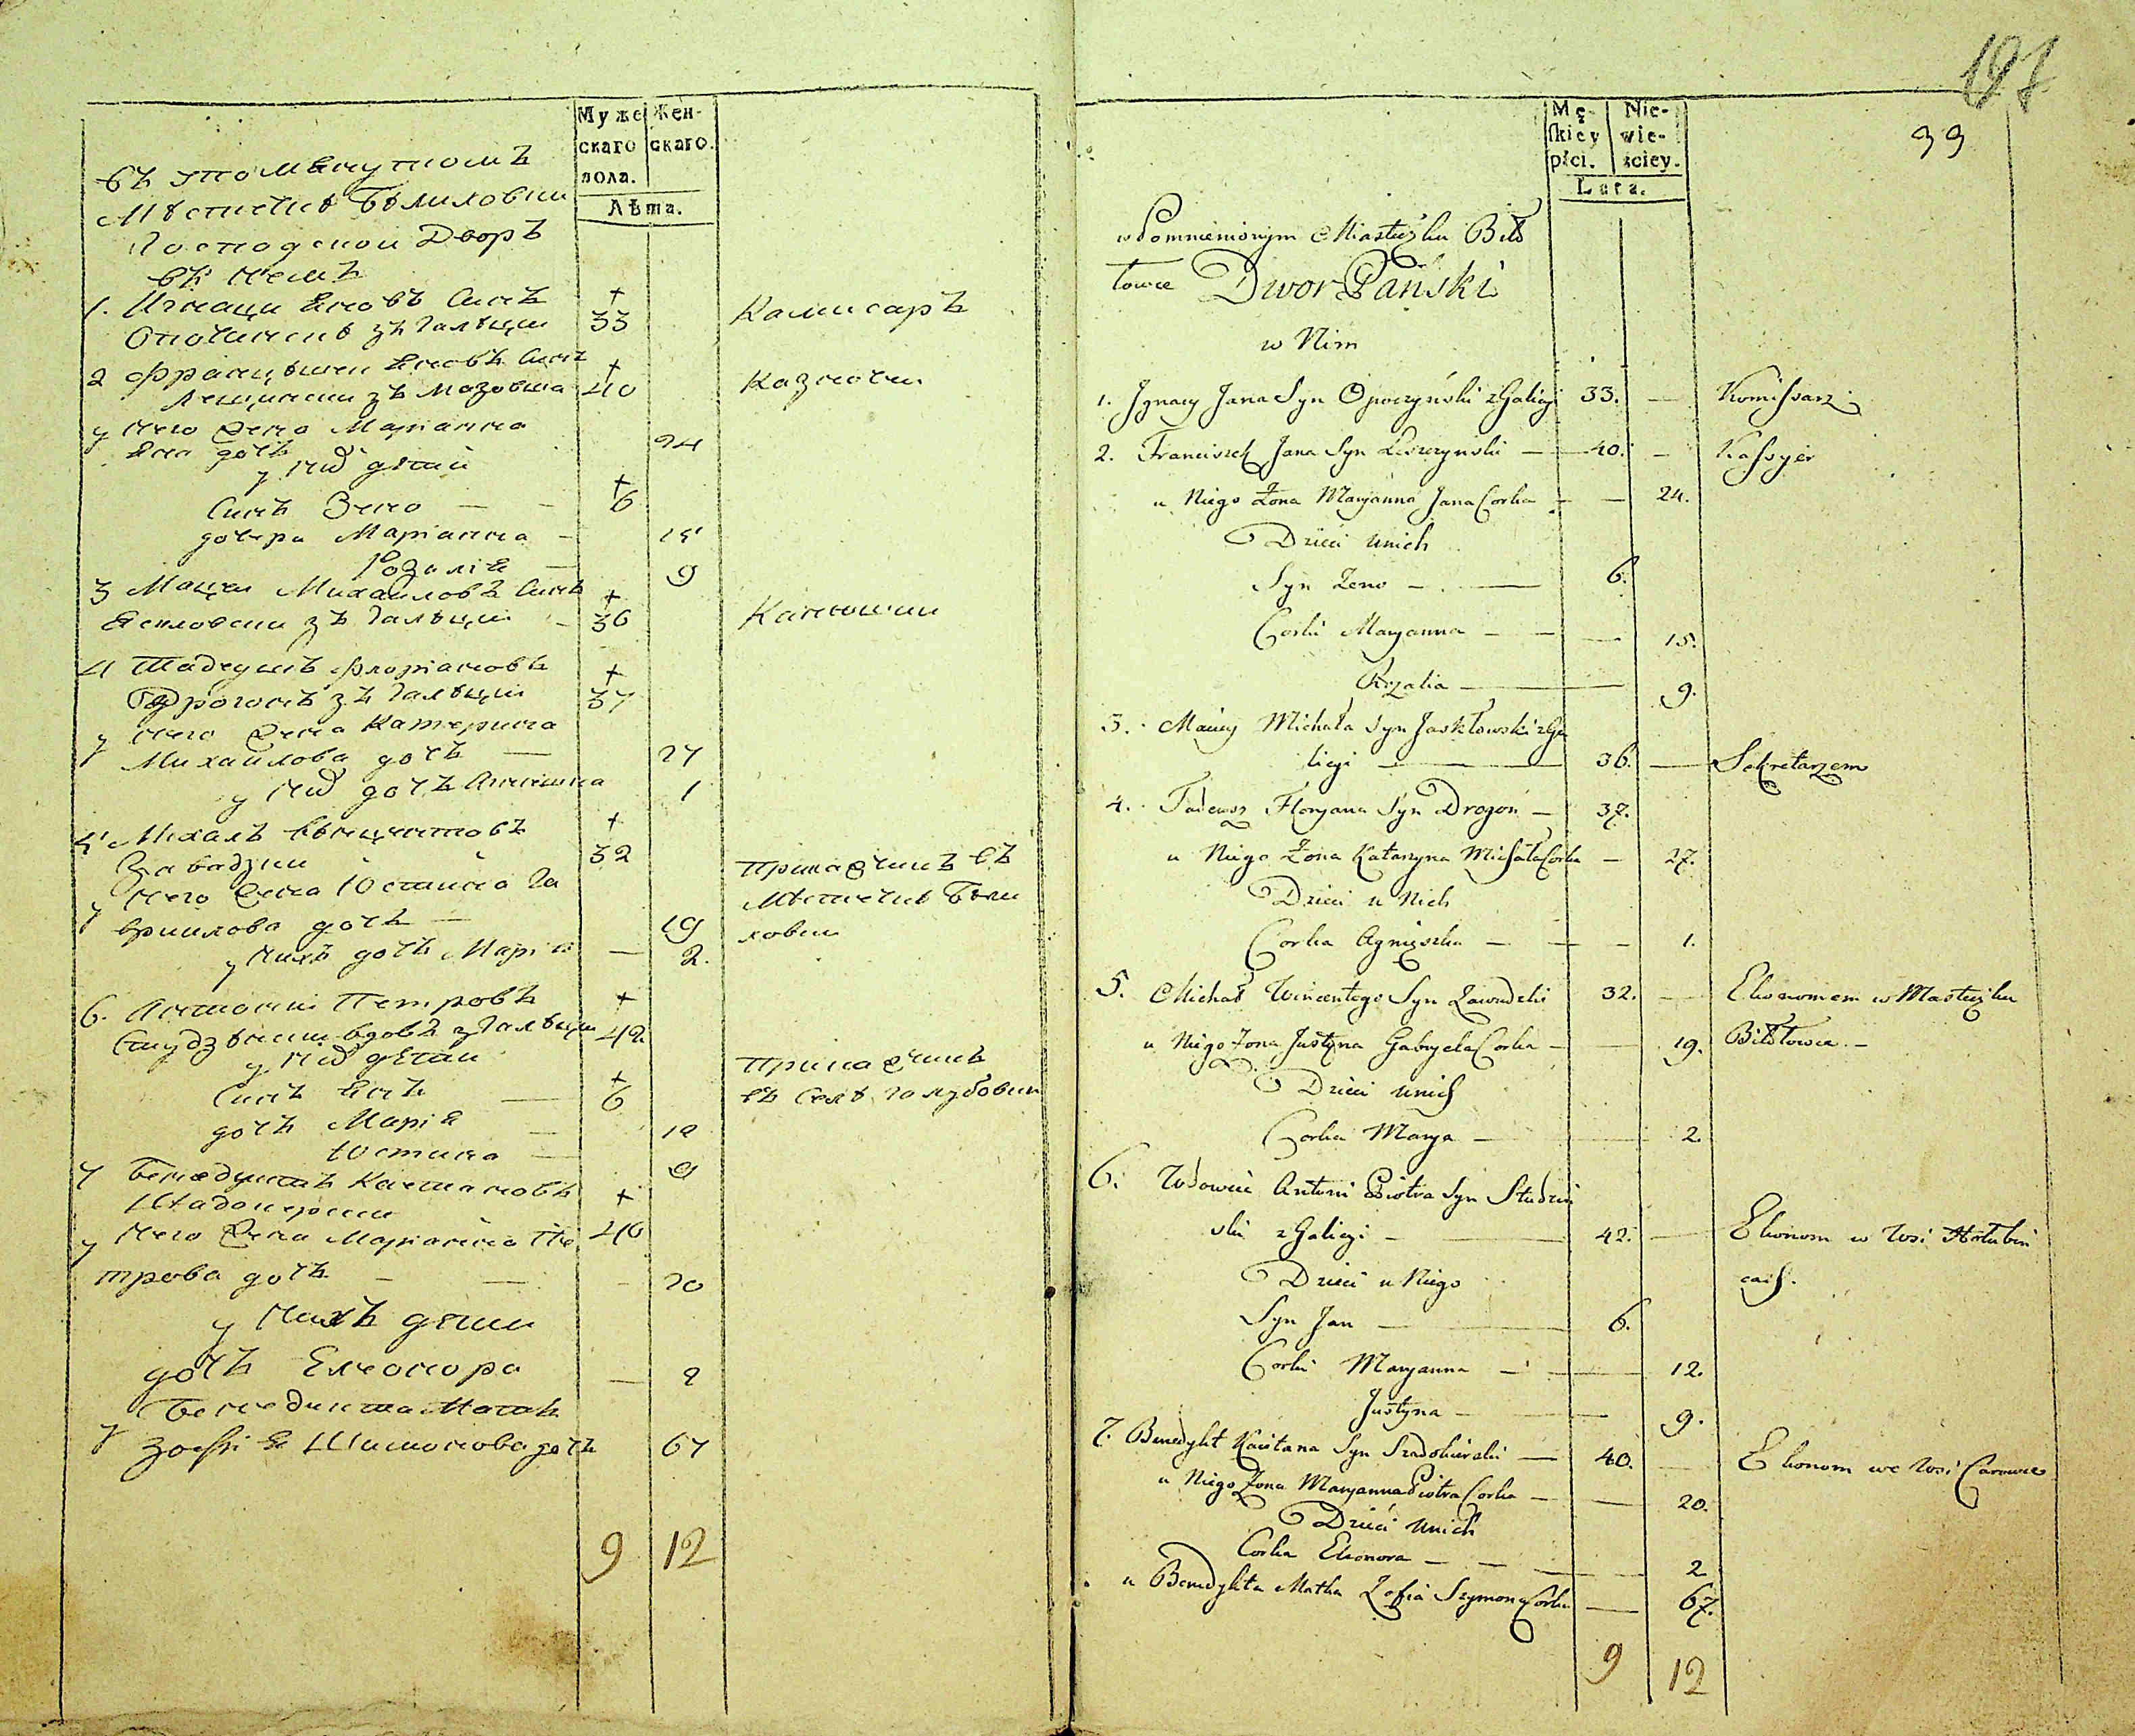 Муже Жен-
скаго скаго.
пола.
Лѣта.
въ упомянутомъ
Мѣстечкѣ Бѣлиловки
Господской Дворъ
въ немъ
1. Игнаци Яновъ Синъ +
Опочински зъ Галѣции 33 Камисаръ
2 Францѣшек Яновъ Синъ +
Лещински зъ Мазовша 40 Казначеи
у него жена Марианна
Яна дочь 24
у них дѣтей
Синъ Зено — — + 6
дочери Марианна — 15
Розалія — 9
3 Мацеи Михайловъ Синъ +
Яскловски зъ Галѣции — 36
4 Тадеушъ Флорiановъ +
Дрогонь зъ Галѣции 37
у него жена Катерина
Михайлова дочь — 27
у них дочь Агнишка 1
5 Михалъ Вѣнцентовъ +
Завадзки 32 Приказчикъ въ
у него жена Юстина Га Мѣстечкѣ Бѣли
врилова дочь — 19 ловки
у нихъ дочь Марія — 2.
6. Антони Петровъ +
Студзѣнски вдовъ з Галѣции 42
у них дѣтей Приказчикъ
Синъ Янъ — + 6 въ Селѣ Голубовки
дочь Марія — 12
Юстина — 9
7 Бенедиктъ Каетановъ +
Шадокерски
у него жена Марианна Пе 40
трова дочь — — — 20
у нихъ дѣти
дочь Елеонора — 2
Бенедикта Матъ
у Зофія Шимонова дочь 67
9 12
197
99
Mę- Nie-
skiey wie-
płci. ściey.
Lata.
wspomnienionym Miasteczku Biło
łowce Dwor Pański
w Nim
1. Jgnacy Jana Syn Opoczyński z Galicyi 33. — Komissarz
2. Franciszek Jana Syn Leszczynski — 40. — Kassyer
u Niego Żona Maryanna Jana Corka — — 24.
Dzieci u nich
Syn Zeno — 6.
Corki Maryanna — — — 15.
Rozalia — 9.
3. Maciey Michała Syn Jaskłowski z Ga
licyi — 36. — Sekretarzem
4. Tadeusz Floryana Syn Drogoń — 37.
u Niego Żona Katarzyna Michała Corka — 27.
Dzieci u Nich
Corka Agnieszka — — — 1.
5. Michał Wincentego Syn Zawadzki 32. — Ekonomem w Miasteczku
u Niego Żona Justyna Gabryela Corka — — 19. Biłołowce —
Dzieci u nich
Corka Marya — 2.
6. Wdowiec Antoni Piotra Syn Studziń
ski z Galicyi — 42. — Ekonom w Wsi Hołubow
cach.
Dzieci u Niego
Syn Jan — 6.
Corki Maryanna — — 12.
Justyna — 9.
7. Benedykt Kaietana Syn Szadokierski — 40. — Ekonom we Wsi Carowce
u Niego Żona Maryanna Piotra Corka — — 20.
Dzieci u nich
Corka Eleonora — — — 2
u Benedykta Matka Zofia Szymona Corka — 67.
9 12